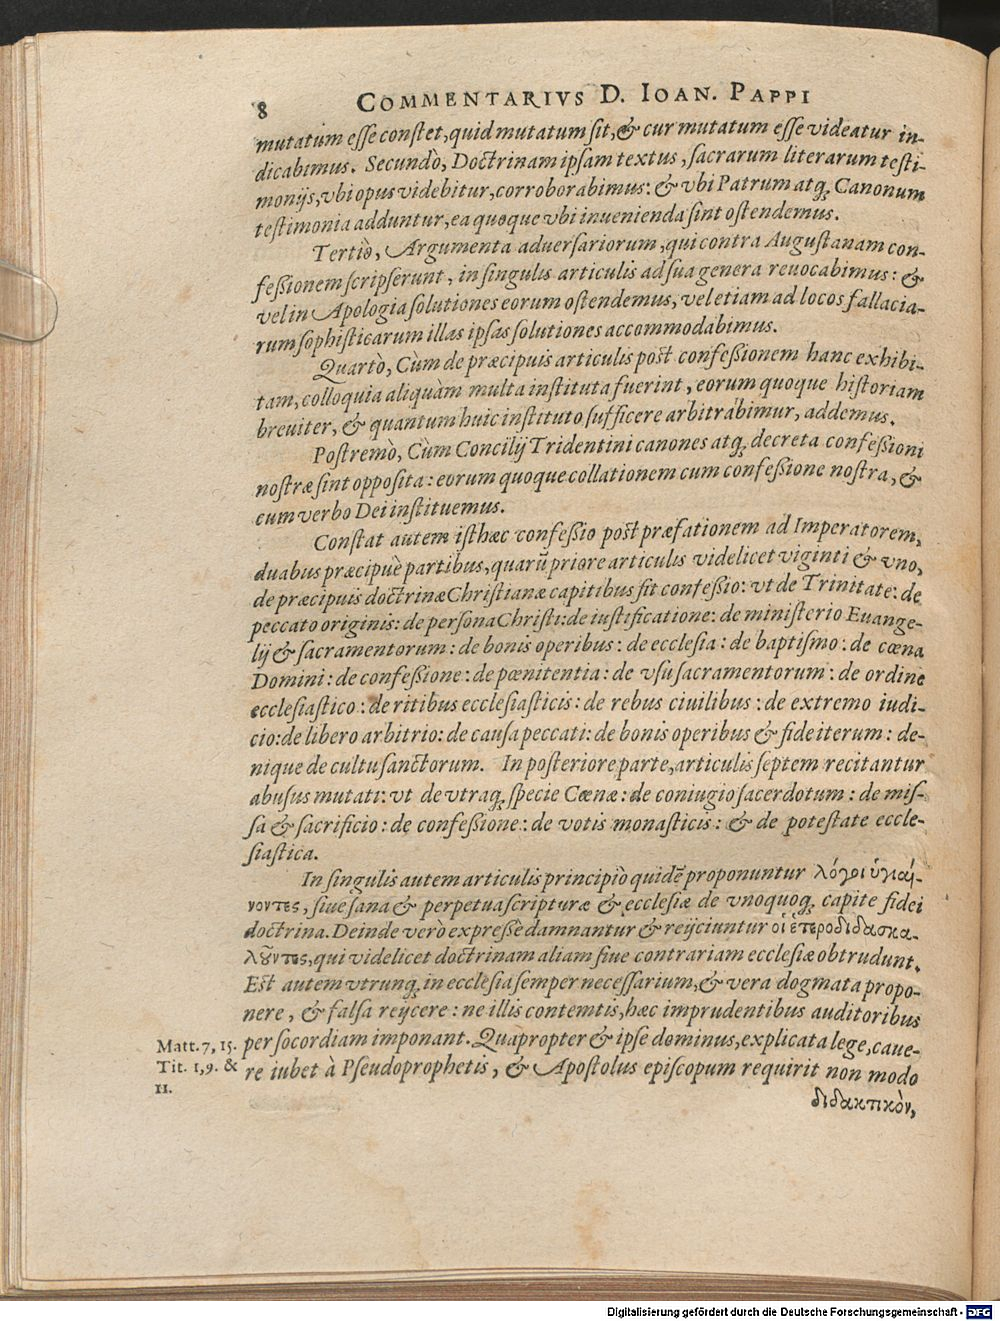 8 COMMENTARIVS D. IOAN. PAPPI
mutatum esse constet, quid mutatum sit, & cur mutatum esse videatur in-
dicabimus. Secundò, Doctrinam ipsam textus, sacrarum literarum testi-
monijs, vbi opus videbitur, corroborabimus: & vbi Patrum atq; Canonum
testimonia adduntur, ea quoque vbi inuenienda sint ostendemus.
Tertiò, Argumenta aduersariorum, qui contra Augustanam con-
fessionem scripserunt, in singulis articulis ad sua genera reuocabimus: &
vel in Apologia solutiones eorum ostendemus, vel etiam ad locos fallacia-
rum sophisticarum illas ipsas solutiones accommodabimus.
Quartò, Cùm de præcipuis articulis post confessionem hanc exhibi-
tam, colloquia aliquàm multa instituta fuerint, eorum quoque historiam
breuiter, & quantum huic instituto sufficere arbitrabimur, addemus.
Postremò, Cùm Concilij Tridentini canones atq; decreta confessioni
nostræ sint opposita: eorum quoque collationem cum confessione nostra, &
cum verbo Dei instituemus.
Constat autem isthæc confessio post præfationem ad Imperatorem,
duabus præcipuè partibus, quarũ priore articulis videlicet viginti & vno,
de præcipuis doctrinæ Christianæ capitibus fit confessio: vt de Trinitate: de
peccato originis: de persona Christi: de iustificatione: de ministerio Euange-
lij & sacramentorum: de bonis operibus: de ecclesia: de baptismo: de cœna
Domini: de confessione: de pœnitentia: de vsu sacramentorum: de ordine
ecclesiastico: de ritibus ecclesiasticis: de rebus ciuilibus: de extremo iudi-
cio: de libero arbitrio: de causa peccati: de bonis operibus & fide iterum: de-
nique de cultu sanctorum. In posteriore parte, articulis septem recitantur
abusus mutati: vt de vtraq; specie Cœnæ: de coniugio sacerdotum: de mis-
sa & sacrificio: de confessione: de votis monasticis: & de potestate eccle-
siastica.
In singulis autem articulis principiò quidẽ proponuntur λόγοι ὑγιαί-
νοντες, siue sana & perpetua scripturæ & ecclesiæ de vnoquoq; capite fidei
doctrina. Deinde verò expressè damnantur & reijciuntur οἱ ἑτεροδιδασκα-
λοῦντες, qui videlicet doctrinam aliam siue contrariam ecclesiæ obtrudunt.
Est autem vtrunq; in ecclesia semper necessarium, & vera dogmata propo-
nere, & falsa reijcere: ne illis contemtis, hæc imprudentibus auditoribus
per socordiam imponant. Quapropter & ipse dominus, explicata lege, caue-
re iubet à Pseudoprophetis, & Apostolus episcopum requirit non modo
διδακτικὸν,
Matt. 7, 15.
Tit. 1, 9. &
11.
Digitalisierung gefördert durch die Deutsche Forschungsgemeinschaft - DFG